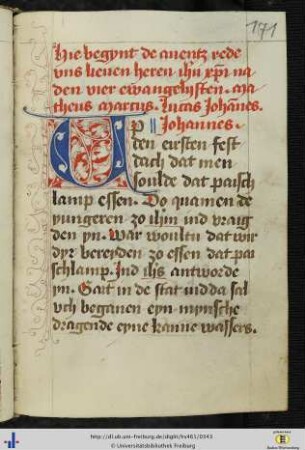 171
Hie begynt de auentz rede
vns lieuen heren ihu xpi na
den vier ewangelisten. Ma
theus Marcus. Lucas Johannes.
Up Johannes.
den eirsten fest
dach dat men
soulde dat paisch
lamp essen. Do quamen de
yungeren zo ihm ind vraig
den yn. War woultu dat wir
dyr bereyden zo essen dat pai
schlamp. Ind ihs antworde
yn. Gait in de stat ind da sal
vch beganen eyn mynsche
dragende eyne kanne wassers.
http://dl.ub.uni-freiburg.de/diglit/hs463/0343
© Universitätsbibliothek Freiburg